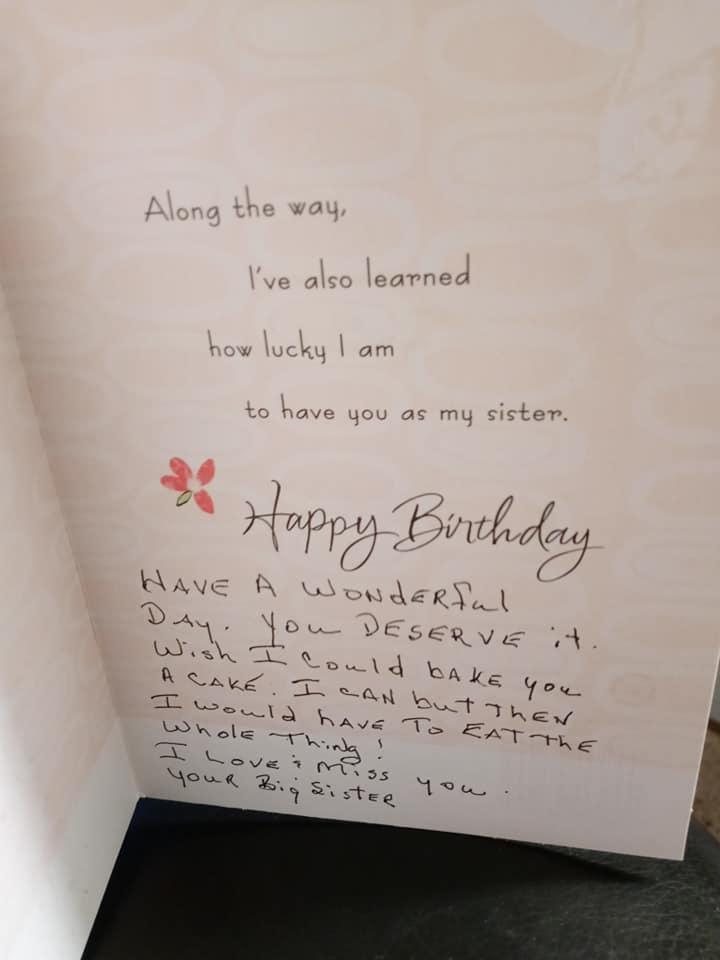 Along the way,
I've also learned
how lucky I am
to have you as my sister.
Happy Birthday
HAVE A WONDERful
DAY. You DESERVE it.
Wish I Could bAKE you
A CAKE. I CAN but THEN
I would hAVE To EAT THE
WhOLE Thing!
I LOVE & Miss you.
YOUR Big SiSTER